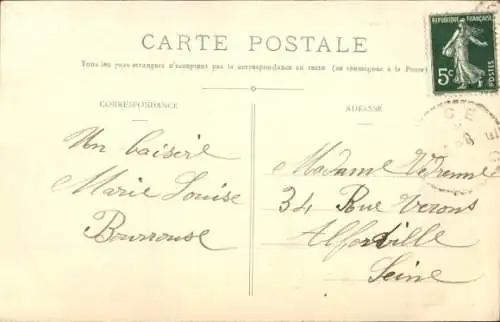 CARTE POSTALE
Tous les pays étrangers n'acceptent pas la correspondance au recto (se renseigner à la Poste)
CORRESPONDANCE
ADRESSE
REPUBLIQUE FRANÇAISE
5c
POSTES
Un baiser
Marie Louise
Madame
34 Rue Verons
Alfortville
Seine